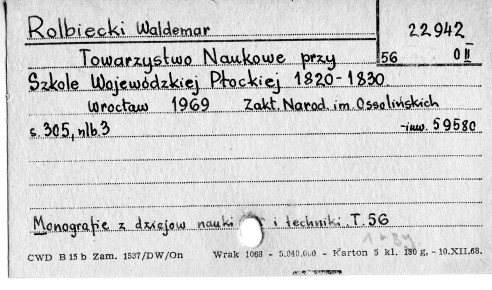 Rolbiecki Waldemar
22942
56 0 II
Towarzystwo Naukowe przy
Szkole Wojewódzkiej Płockiej 1820-1830
Wrocław 1969 Zakt. Narod. im. Ossolińskich
s. 305, nlb. 3 -inw. 59580
Monografie z dziejow nauki i techniki. T. 56
CWD B 15 b Zam. 1537/DW/On Wrak 1068 - 5.040.000 - Karton 5 kl. 180 g. - 10.XII.68.